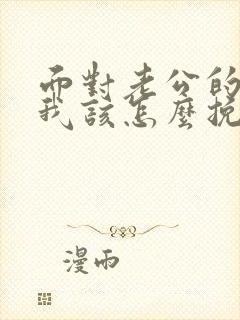 而對老公的
我該怎麼挽
漫雨